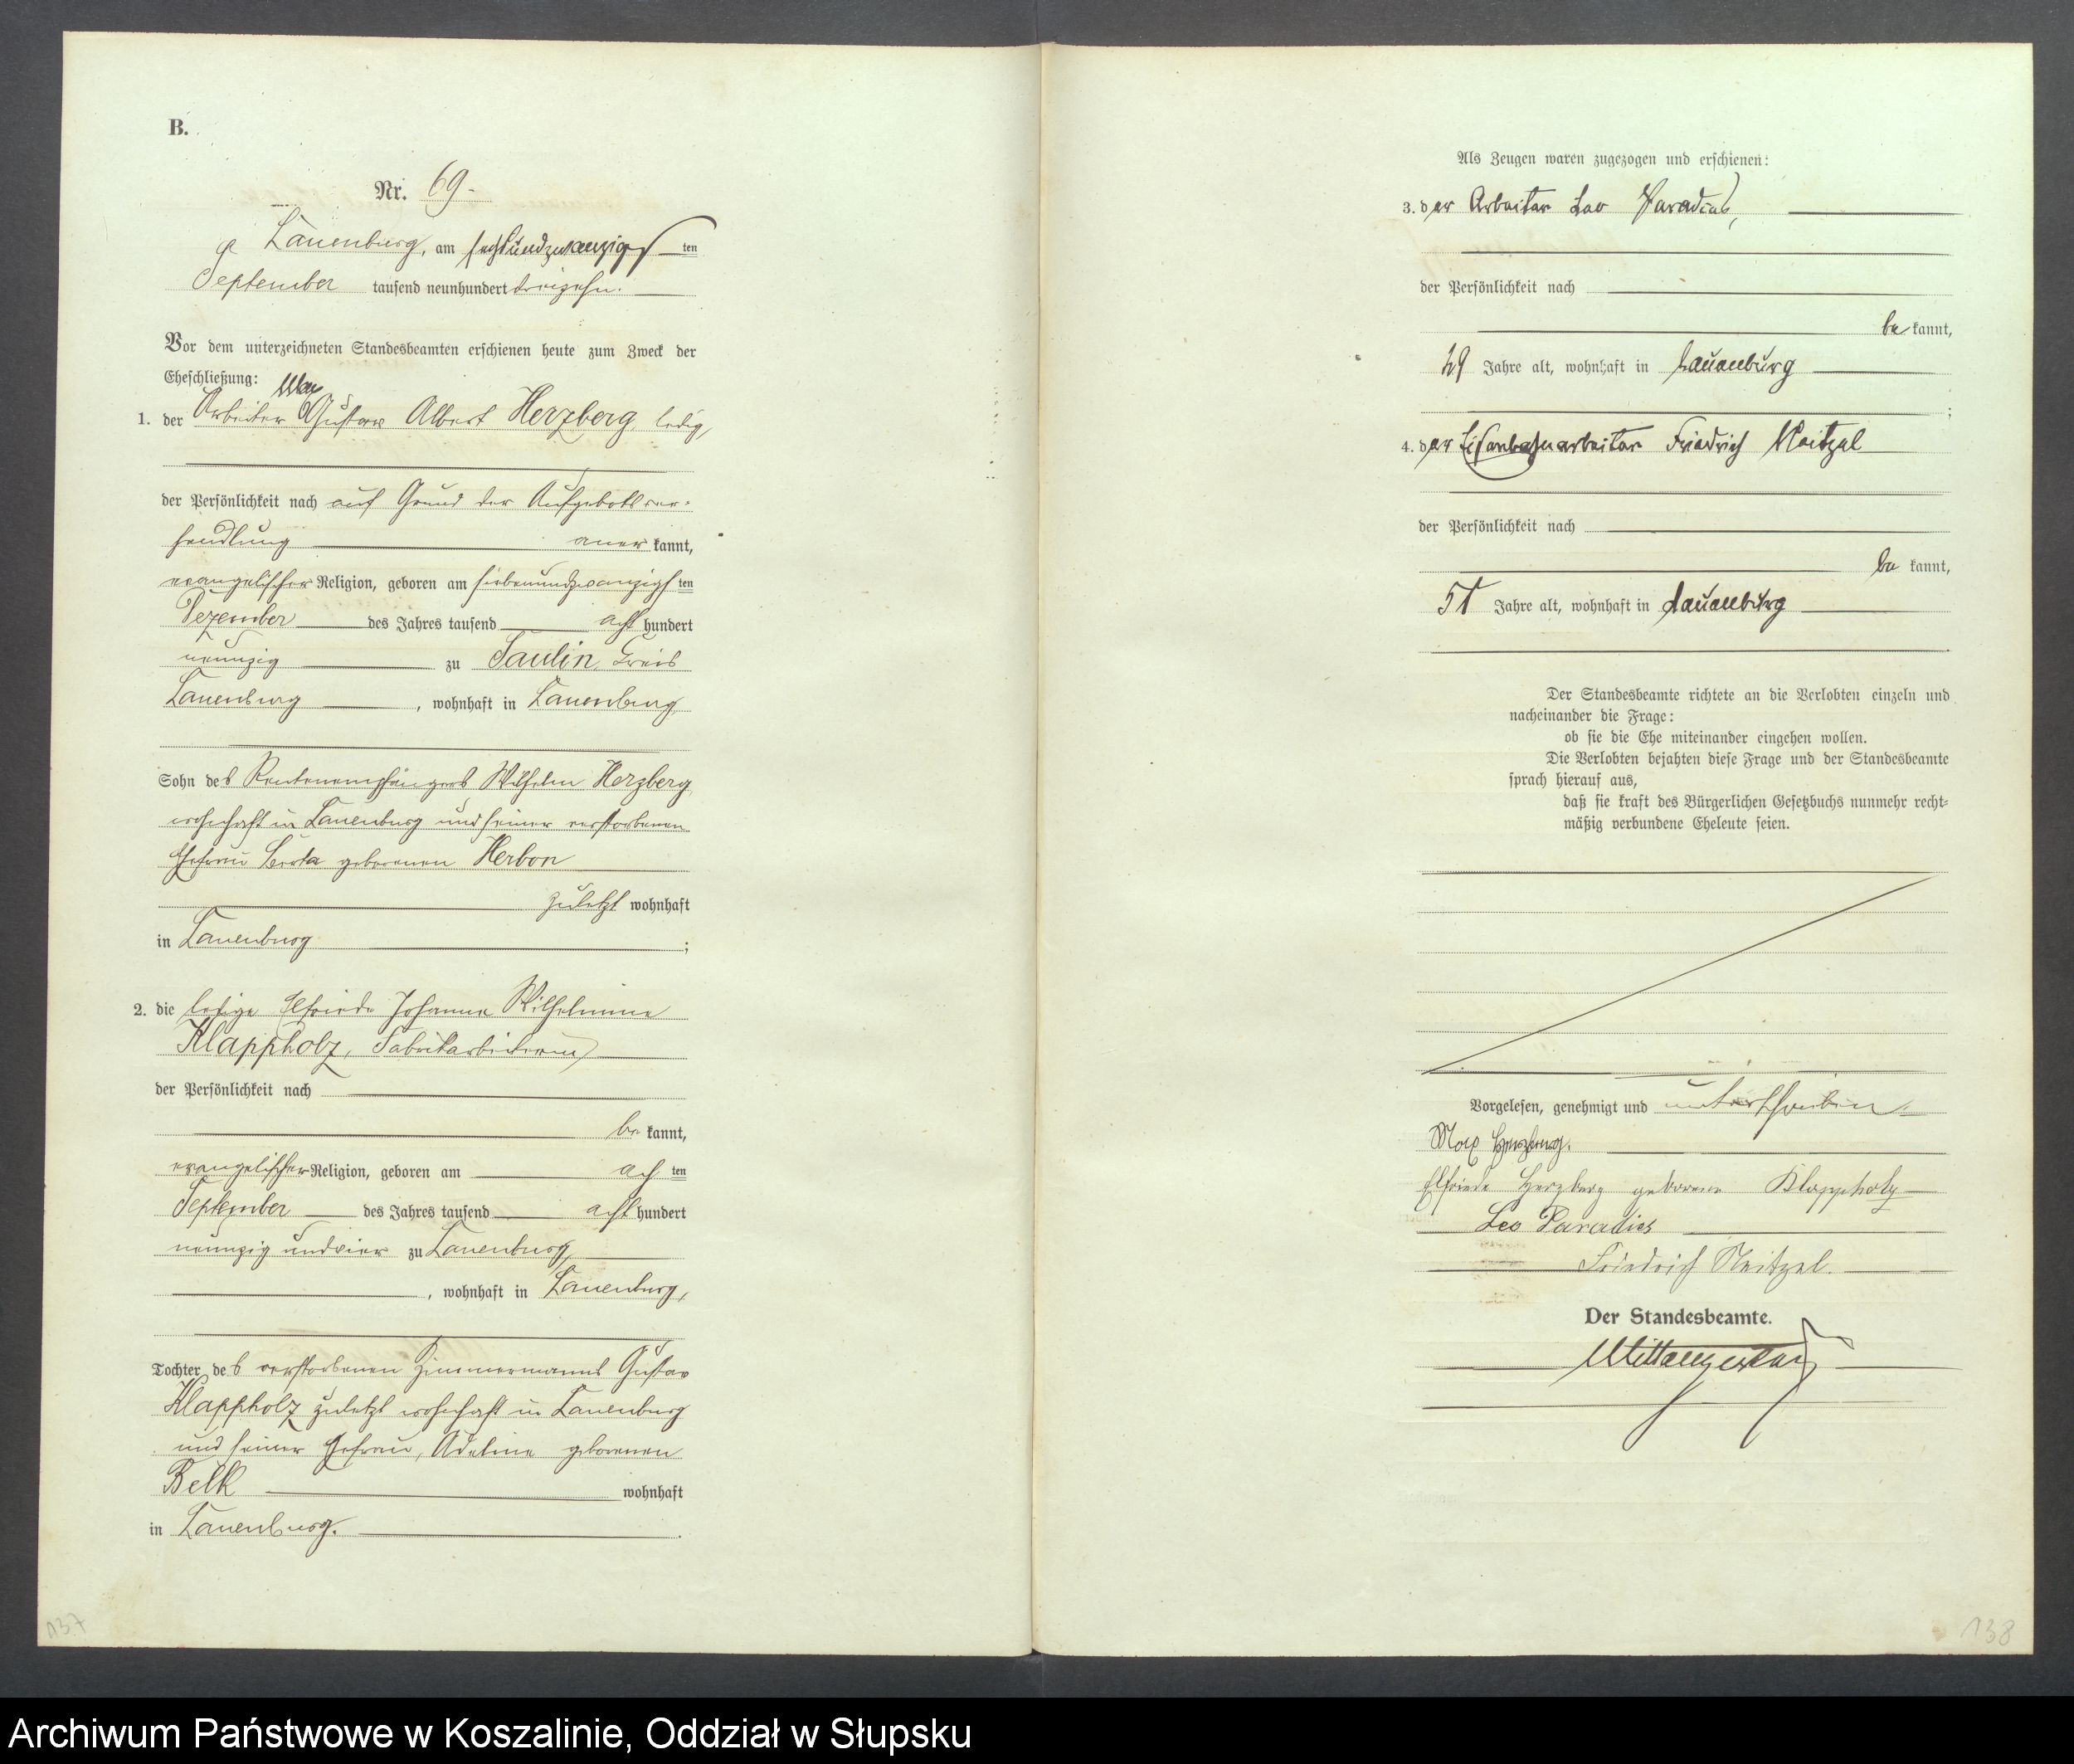 B.
Nr. 69.
Lauenburg, am sechsundzwanzigsten
September tausend neunhundert dreizehn.
Vor dem unterzeichneten Standesbeamten erschienen heute zum Zweck der
Eheschließung:
Max
1. der Arbeiter Gustav Albert Herzberg, ledig,
der Persönlichkeit nach auf Grund der Aufgebotsver-
handlung anerkannt,
evangelischer Religion, geboren am siebenundzwanzigsten
Dezember des Jahres tausend achthundert
neunzig zu Saulin, Kreis
Lauenburg, wohnhaft in Lauenburg
Sohn des Rentenempfängers Wilhelm Herzberg,
wohnhaft in Lauenburg und seiner verstorbenen
Ehefrau Berta geborenen Herbon
zuletzt wohnhaft
in Lauenburg;
2. die ledige Elfriede Johanna Wilhelmine
Klappholz, Fabrikarbeiterin,
der Persönlichkeit nach
bekannt,
evangelischer Religion, geboren am achten
September des Jahres tausend achthundert
neunzig und vier zu Lauenburg,
, wohnhaft in Lauenburg,
Tochter des verstorbenen Zimmermanns Gustav
Klappholz zuletzt wohnhaft in Lauenburg
und seiner Ehefrau, Adeline geborenen
Belk wohnhaft
in Lauenburg.
137
Als Zeugen waren zugezogen und erschienen:
3. der Arbeiter Leo Paradies,
der Persönlichkeit nach
bekannt,
29 Jahre alt, wohnhaft in Lauenburg
;
4. der Eisenbahnarbeiter Friedrich Neitzel
der Persönlichkeit nach
bekannt,
51 Jahre alt, wohnhaft in Lauenburg
.
Der Standesbeamte richtete an die Verlobten einzeln und
nacheinander die Frage:
ob sie die Ehe miteinander eingehen wollen.
Die Verlobten bejahten diese Frage und der Standesbeamte
sprach hierauf aus,
daß sie kraft des Bürgerlichen Gesetzbuchs nunmehr recht-
mäßig verbundene Eheleute seien.
Vorgelesen, genehmigt und unterschrieben
Max Herzberg.
Elfriede Herzberg geborene Klappholz
Leo Paradies
Friedrich Neitzel.
Der Standesbeamte.
138
Archiwum Państwowe w Koszalinie, Oddział w Słupsku